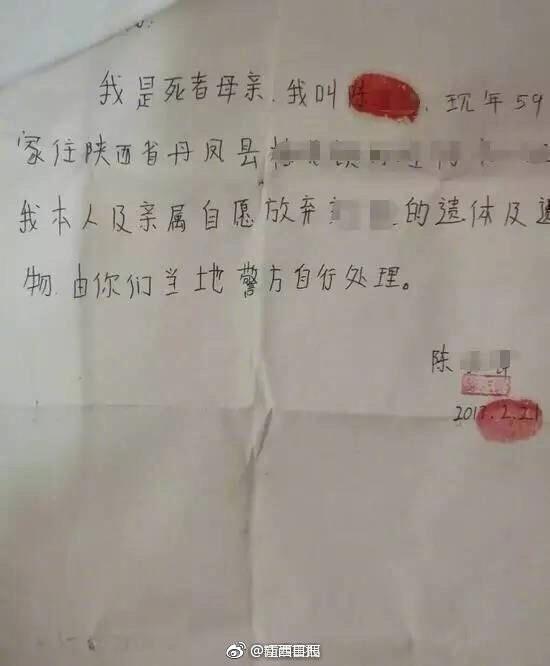 我是死者母亲.我叫陈 . 现年59
家住陕西省丹凤县
我本人及亲属自愿放弃 的遗体及遗
物.由你们当地警方自行处理。
陈
2017.2.21
@江西日报